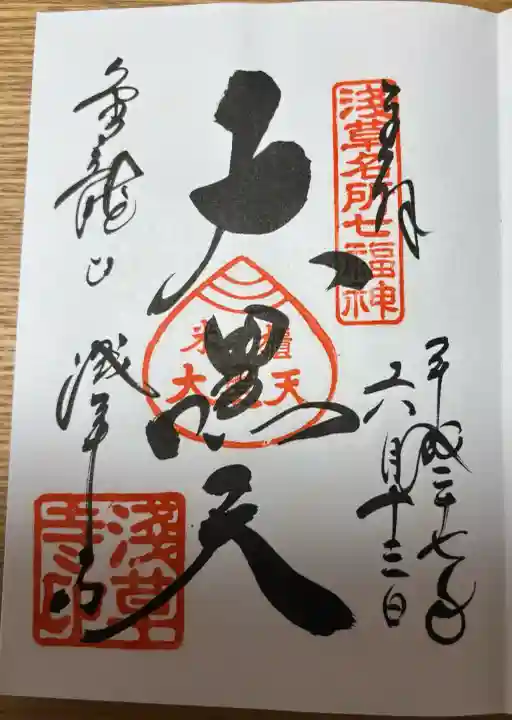 奉拝
浅草名所七福神
平成二十七年
六月十二日
大黒天
米櫃
大黒天
金龍山
浅草寺
浅草
寺印